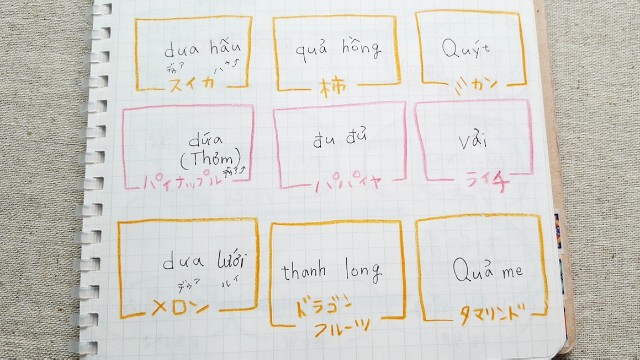 dưa hấu
quả hồng
Quýt
スイカ
柿
ミカン
dứa
(Thơm)
đu đủ
Vải
パイナップル
パパイヤ
ライチ
dưa lưới
thanh long
Quả me
メロン
ドラゴン
フルーツ
タマリンド